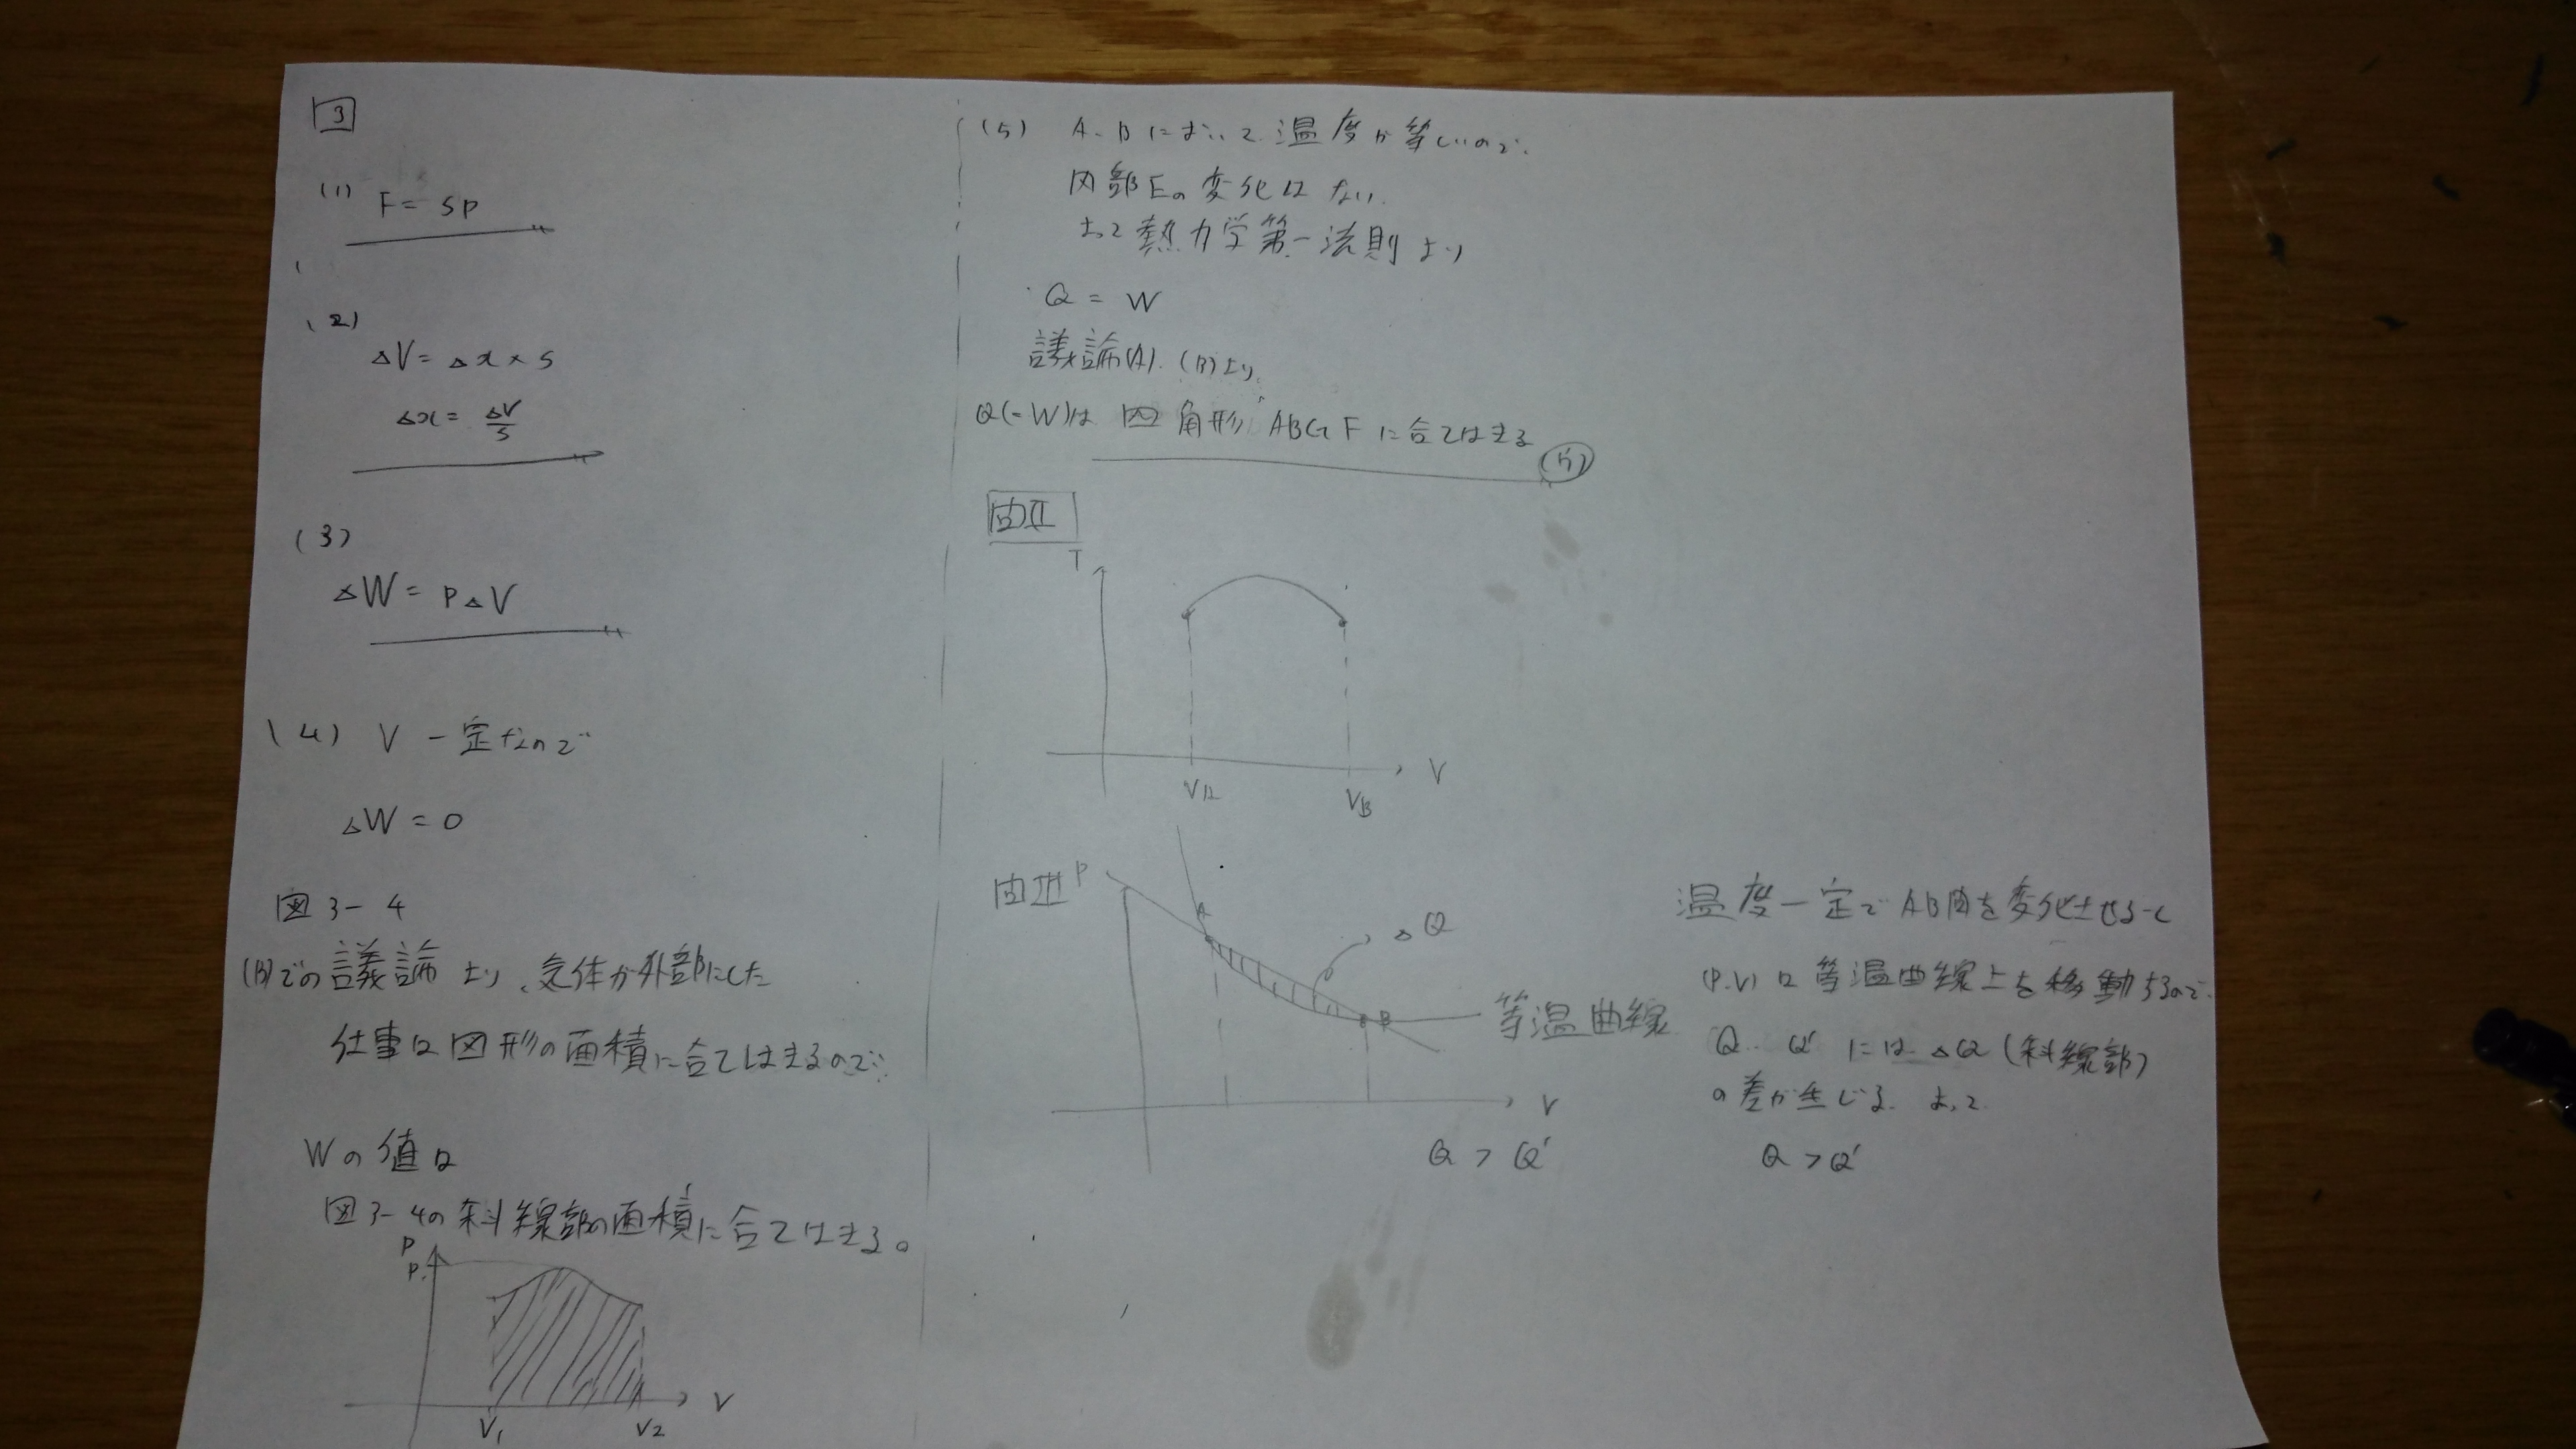 3
(1) F = SP
(2)
ΔV = Δx × S
Δx = ΔV/S
(3)
ΔW = PΔV
(4) V 一定なので
ΔW = 0
図3-4
(B)での議論より、気体が外部にした
仕事は図形の面積に合てはまるので
Wの値は
図3-4の斜線部の面積に合てはまる。
P
P1
V
V1
V2
(5) A、Bにおいて温度が等しいので、
内部Eの変化はない。
よって熱力学第一法則より
Q = W
議論(A).(B)より、
Q(=W)は四角形ABGFに合てはまる
(5)
問II
T
V
VA
VB
問III
P
A
ΔQ
B
等温曲線
V
Q > Q'
温度一定でAB間を変化させると
(P.V)は等温曲線上を移動するので、
Q、Q'にはΔQ(斜線部)
の差が生じる. よって
Q > Q'